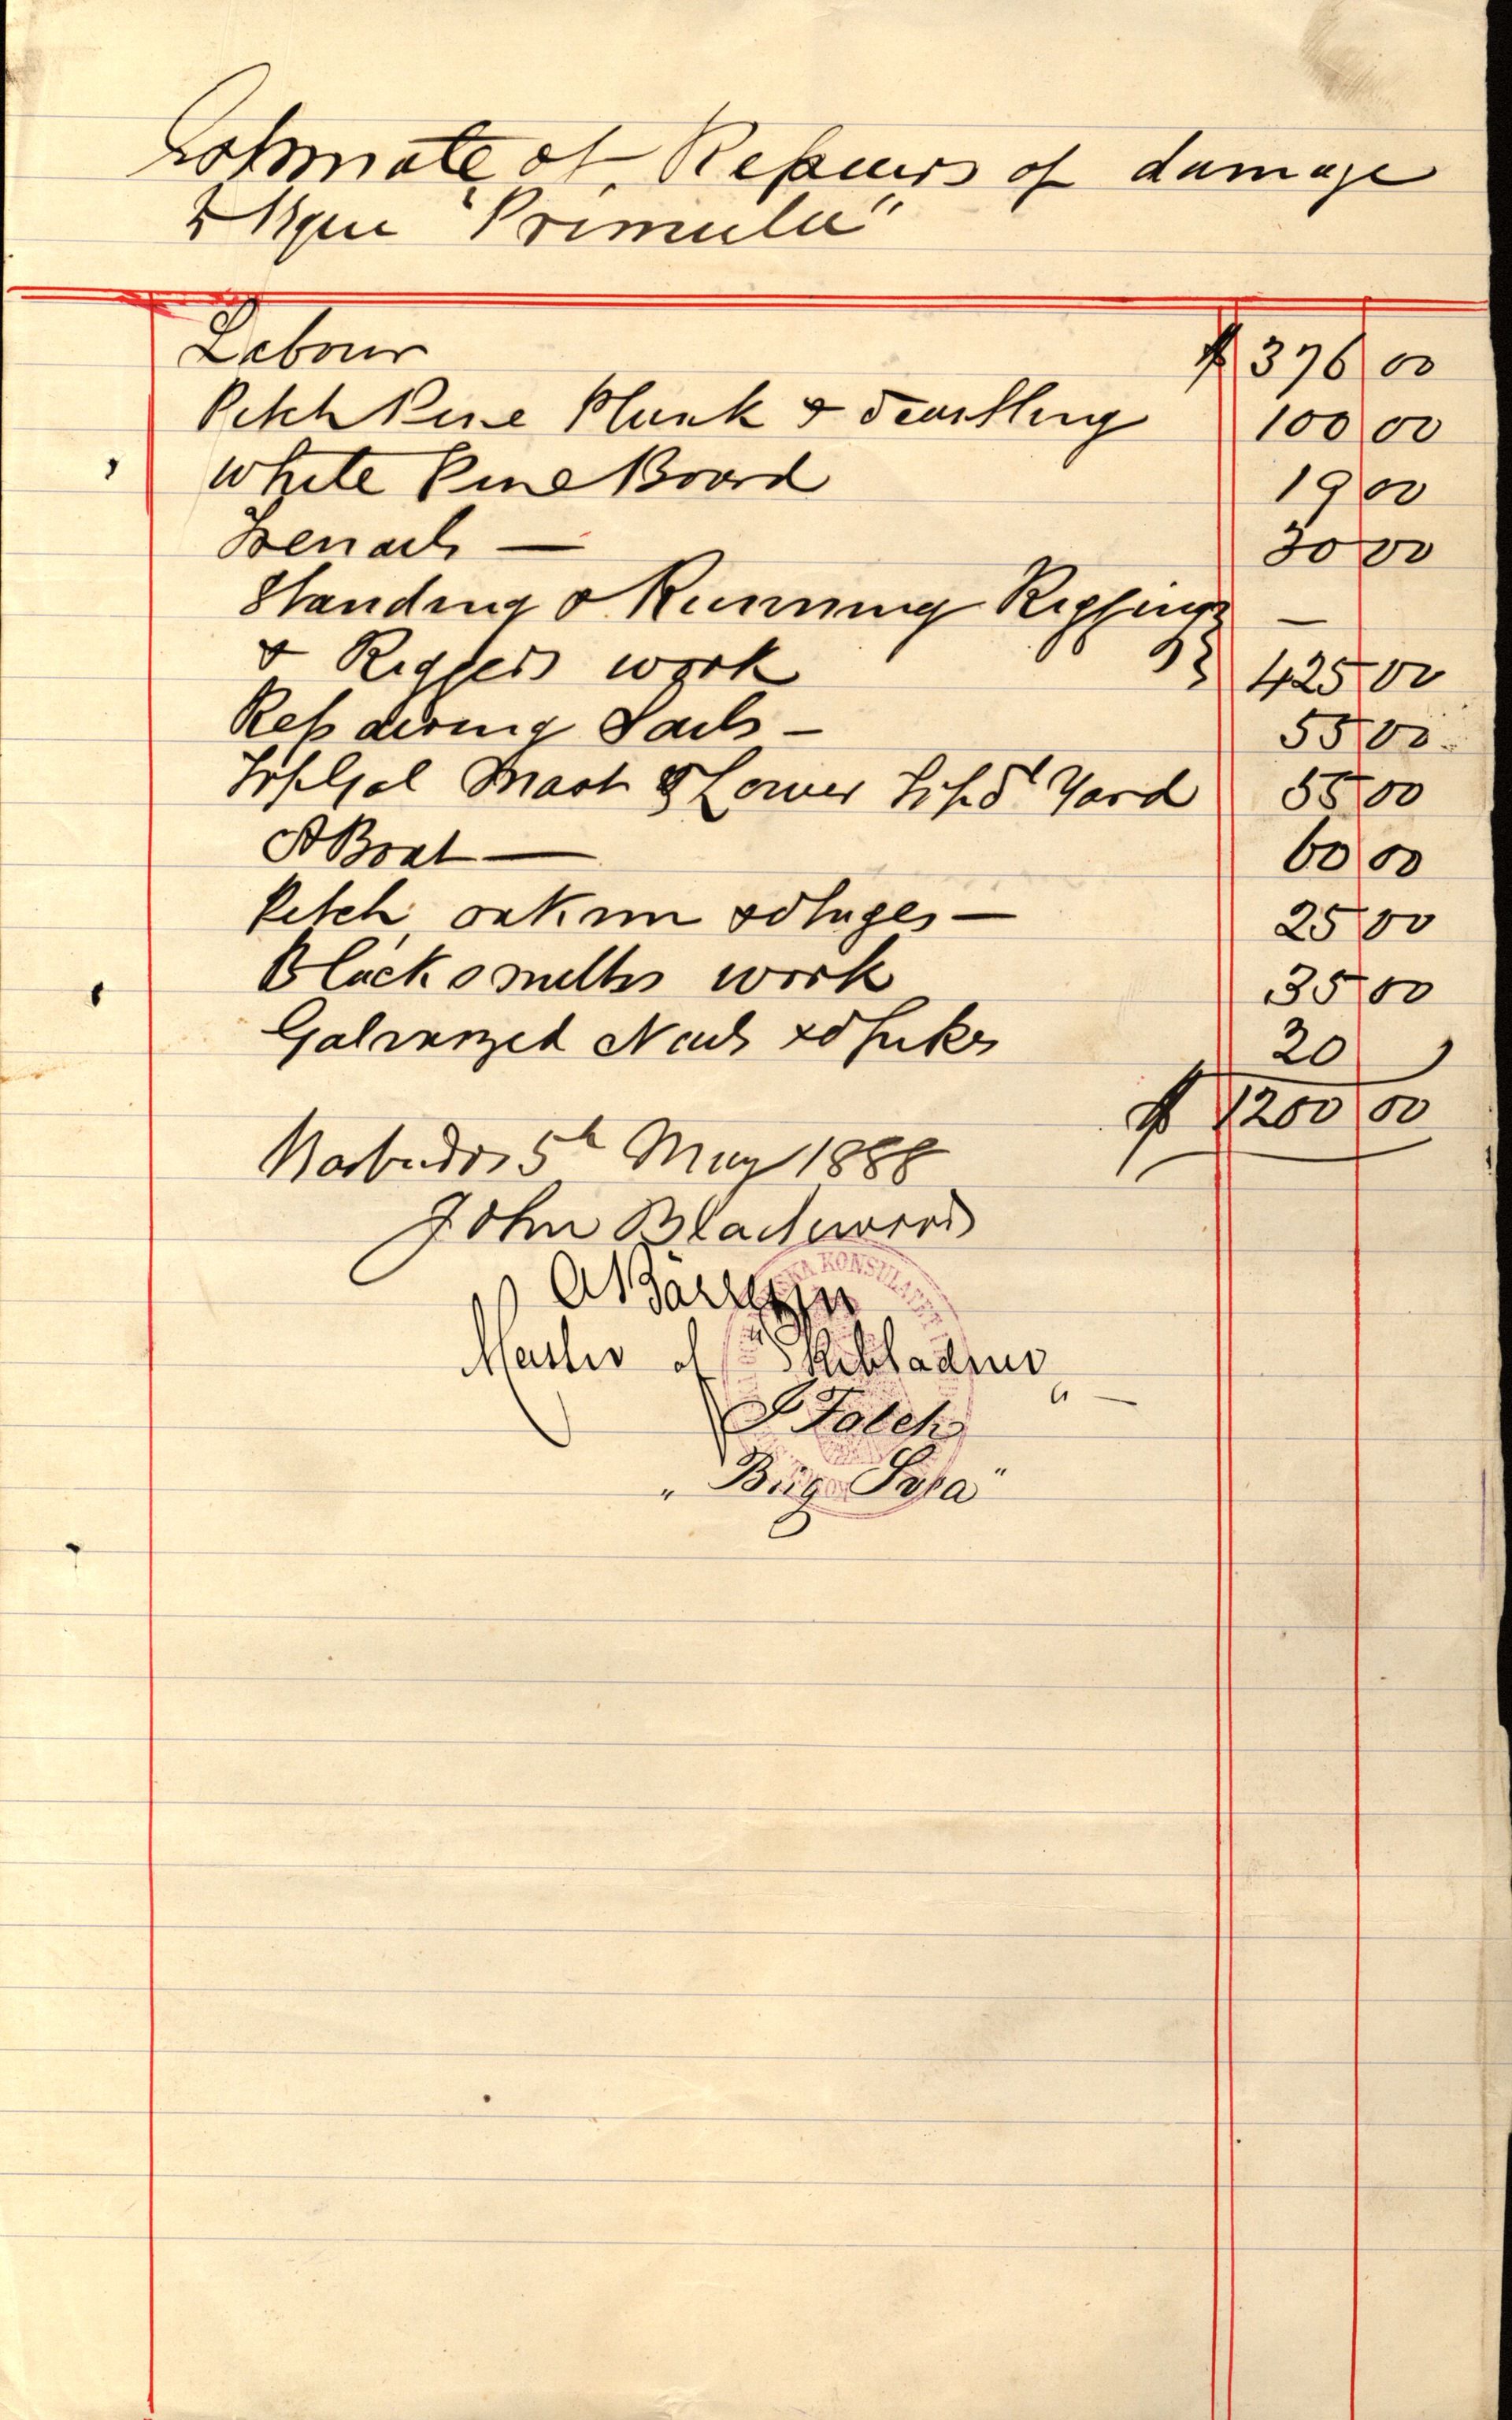 Estimate of Repairs of damage
Bque "Primula"
Labour $ 376 00
Pitch Pine Plank & Scantling 100 00
White Pine Board 19 00
30 00
Standing & Running Rigging —
& Riggers work 425 00
Repairing Sails — 55 00
TopGal Mast & Lower Tops'l Yard 55 00
A Boat — 60 00
Pitch oakum — 25 00
Blacksmiths work 35 00
Galvanized Nails & Spikes 20
$ 1200 00
Barbados 5th May 1888
John Blackwood
KONSULATET
Master of
"Brig Svea"